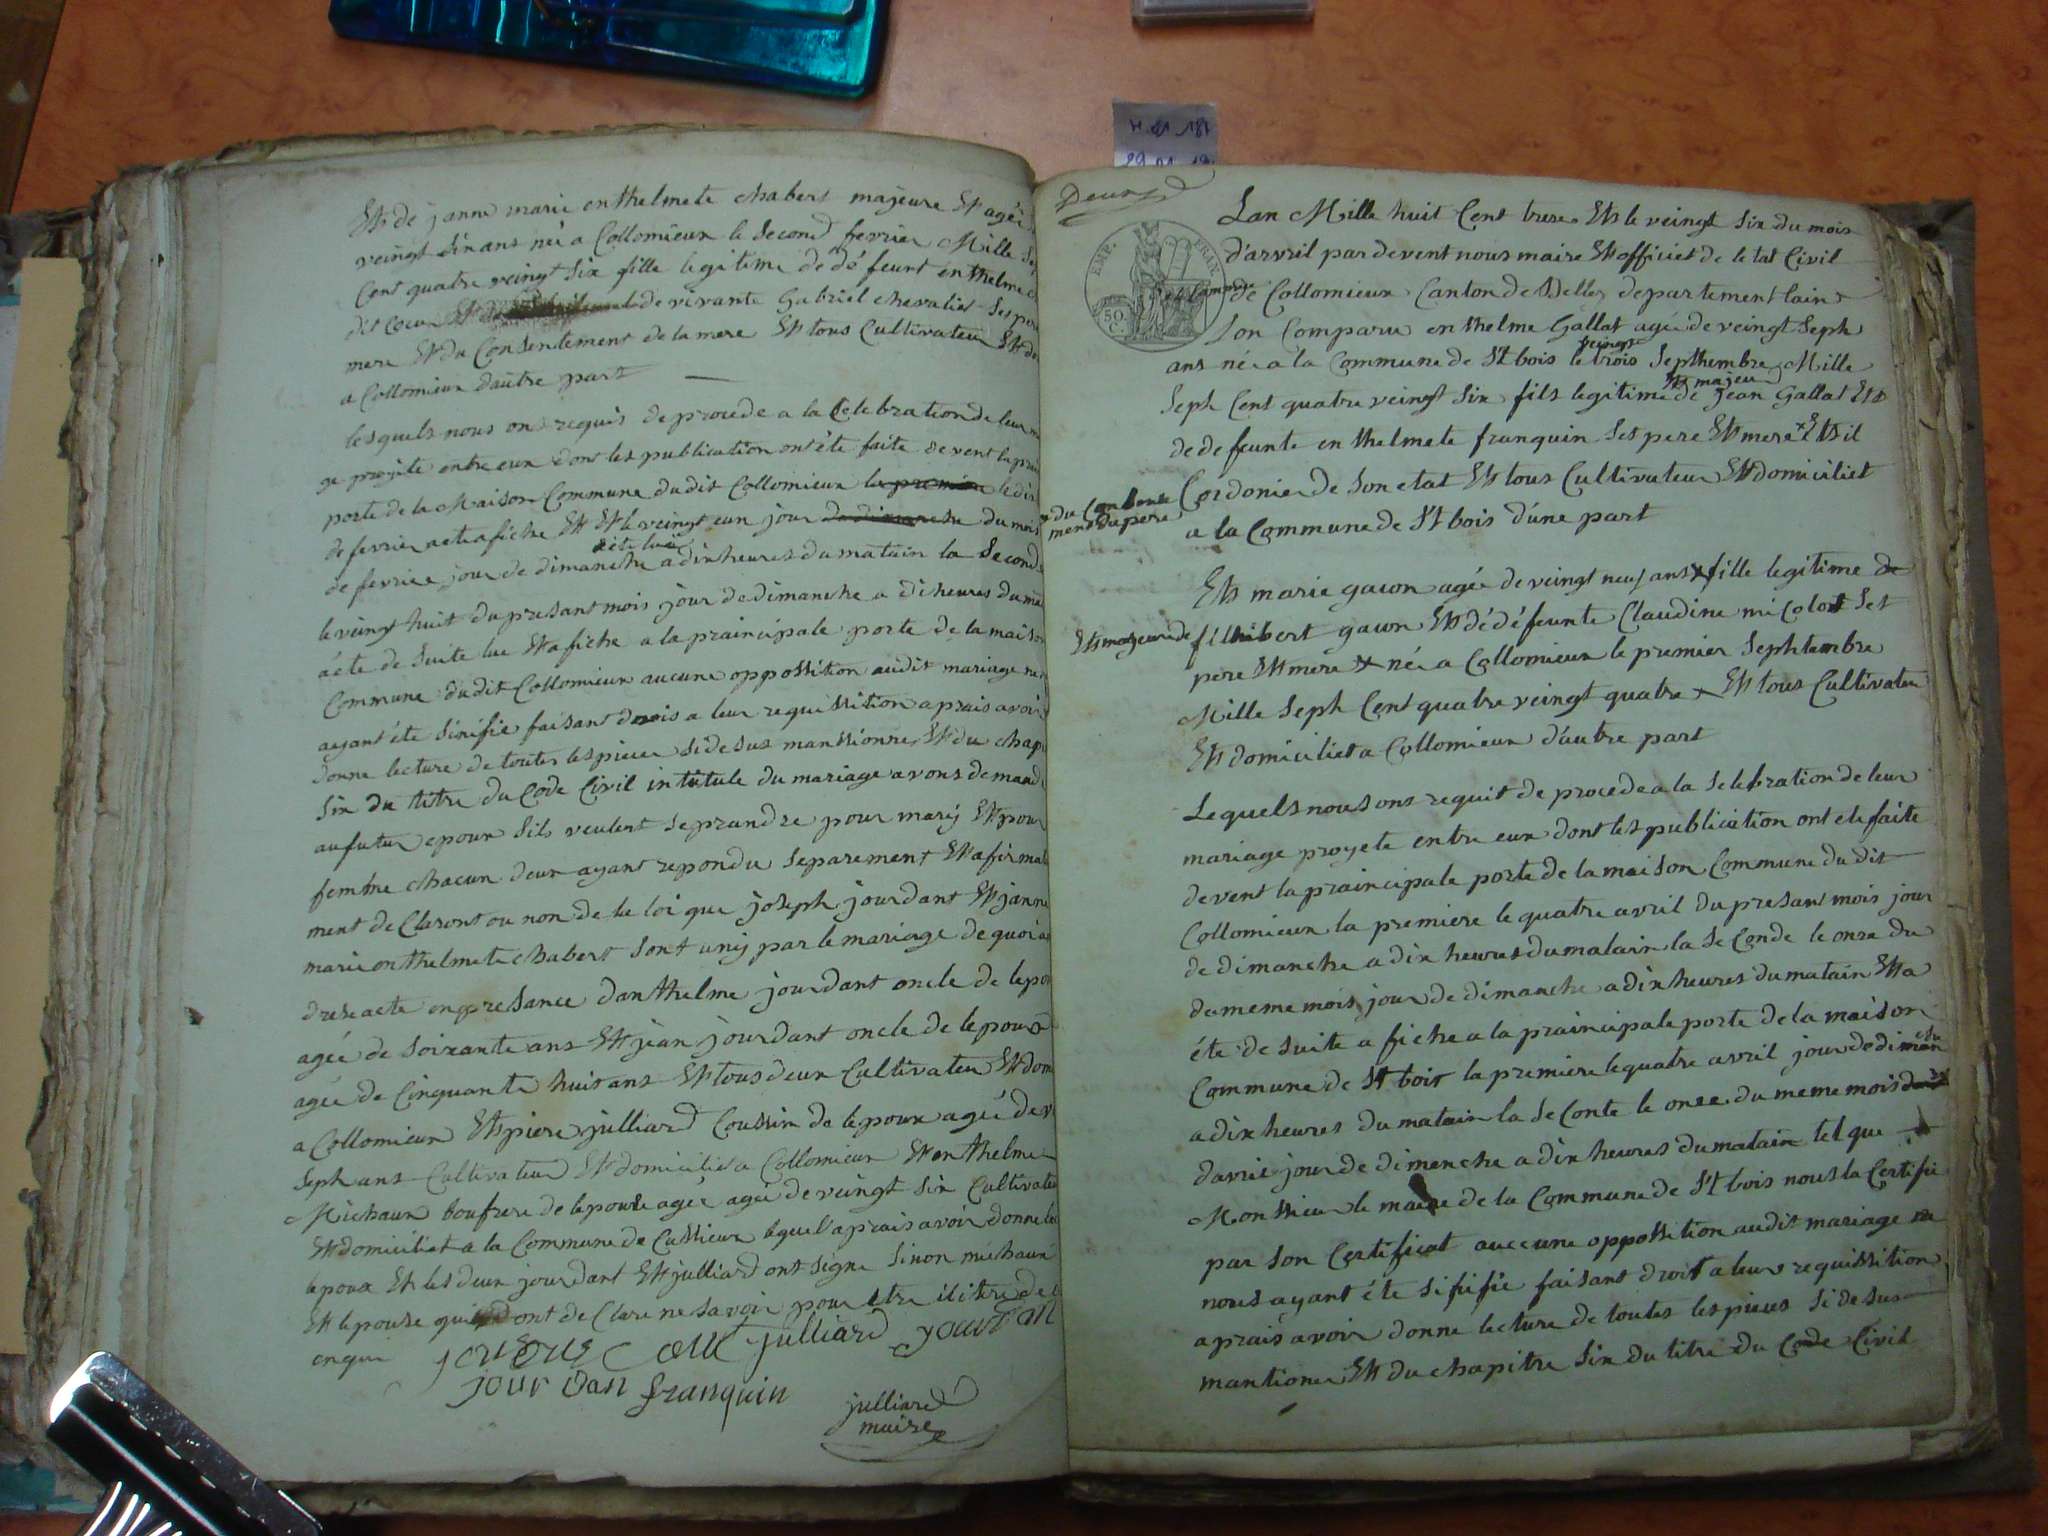 Et de janne marie enthelmete chabert majeure Et agée
veingt six ans née a Collomieux le second fevrier Mille sep
Cent quatre veingt six fille legitime de défeunt enthelme ch
dit coeur Et de vivante Gabriel chevalier Ses per
mere Et du Consentement de la mere Et tous Cultivateur Et do
a Collomieux dautre part
lesquels nous on requis de procede a la Celebration de leur m
ge proyéte entre eux dont les publication ont été faite devent la prin
porte de la Maison Commune dudit Collomieux la premiere le dix
de fevrier acte afiche Et Et le veingt eun jour de dimanche du mois
de fevrier jour de dimanche a dix heures du matain la Seconde
le veingt huit du presant mois jour de dimanche a di heures du mat
acte de suite lue Et afiche a la praincipale porte de la maison
Commune dudit Collomieux aucune oppossition audit mariage ne
ayant été sinifie faisant drois a leur requissition aprais avoir
donne lecture de toutes les pieces si desus manssionne Et du chap
Six du titre du Code Civil intitule du mariage avons demande
au futur epoux sils veulent se prandre pour mary Et pour
femme chacun deux ayant repondu separement Et afirmati
ment de Claront ou non de la loi que joseph jourdant Et janne
marie enthelmete chabert sont uniy par le mariage de quoi a
drese acte en presance danthelme jourdant oncle de lepou
agée de soixante ans Et jean jourdant oncle de lepoux
agée de Cinquante huit ans Et tous deux Cultivateur Et dom
a Collomieux Et piere julliard Coussin de lepoux agée de v
Seph ans Cultivateur Et domicilié a Collomieux Et enthelme
Michaux boufrere de lepouse agée agée de veingt six Cultivateur
Et domiciliet a la Commune de Cussieux lequel aprais avoir donne le
lepoux Et les deux jourdant Et julliard ont signe sinon michaux
Et lepouse qui ont de Clare ne savoir pour etre ilitre de
enqui
julliard jourdan
jourdan franquin
julliard
maire
Deux
EMP. FRAN.
50. C.
Lan Mille huit Cent treze Et le veingt six du mois
d'avril par devent nous maire Et officiet de le tat Civil
de la Commune
de Collomieux Canton de Belley departement lain
Son Comparu enthelme Gallat agée de veingt Seph
ans né a la Commune de St bois le trois Septhembre Mille
veingt
Seph Cent quatre veingt six fils legitime de jean Gallat Et
Et majeur
de defeunte enthelmete franquin Ses pere Et mere + Et il
Cordonier de son etat Et tous Cultivateur Et domiciliet
+ du Consente
ment du pere
a la Commune de St bois d'une part
Et marie gacon agée de veingt neuf ans + fille legitime de
Et majeure de
fillibert gacon Et dé défeunte Claudine micolot Ses
pere Et mere + née a Collomieux le premier Sephtembre
Mille Seph Cent quatre veingt quatre + Et tous Cultivateu
Et domiciliet a Collomieux d'autre part
Lequels nous ons requit de procede a la Selebration de leur
mariage proyete entre eux dont les publication ont ete faite
devent la praincipale porte de la maison Commune du dit
Collomieux la premiere le quatre avril du presant mois jour
de dimanche a dix heures du matain la Seconde le onze du
du meme mois jour de dimanche a dix heures du matain Et a
été de suite afiche a la praincipale porte de la maison
Commune de St bois la premiere le quatre avril jour de diman
che
a dix heures du matain la Seconte le onze du meme mois
davril jour de dimenche a dix heures du matain tel que
Monssieur le maire de la Commune de St bois nous la Certifié
par son Certificat auccune oppossition audit mariage ne
nous ayant été sififié faisant droit a leur requissition
aprais avoir donne lecture de toutes les pieces Si desus
mantione Et du chapitre Six du titre du Code Civil